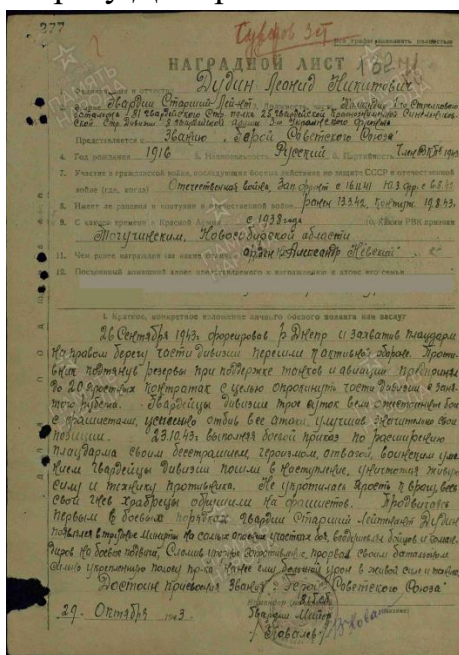 277
все графы заполнять полностью
НАГРАДНОЙ ЛИСТ
Дудин Леонид Никитович
Гвардии Старший Лейт-нт Командир 1-го Стрелкового
батальона 81 Гвардейского Стр. полка 25 Гвардейской Краснознаменной Синельников-
ской Стр. Дивизии 8 Гвардейской Армии 3-го Украинского Фронта
Представляется к Званию „Герой Советского Союза"
4. Год рождения 1916 5. Национальность Русский 6. Партийность Член ВКП(б)
7. Участие в гражданской войне, последующих боевых действиях по защите СССР и отечественной
войне (где, когда) Отечественная война, Зап. фронт с 16.11.41
8. Имеет ли ранения и контузии в отечественной войне ранен 13.3.42, контуж. 19.8.43.
9. С какого времени в Красной Армии с 1938 года 10. Каким РВК призван
Тогучинским, Новосибирской области
11. Чем ранее награжден (за какие отличия) орден „Александр Невский"
12. Постоянный домашний адрес представляемого к награждению и адрес его семьи
I. Краткое, конкретное изложение личного боевого подвига или заслуг
26 Сентября 1943г. форсировав р. Днепр и захватив плацдарм
на правом берегу части дивизии перешли к активной обороне. Проти-
вник подтянув резервы при поддержке танков и авиации предпринял
до 20 яростных контратак с целью опрокинуть части дивизии с заня-
того рубежа. Гвардейцы дивизии трое суток вели ожесточенные бои
с фашистами, успешно отбив все атаки, улучшив значительно свои
позиции. 23.10.43г. выполняя боевой приказ по расширению
плацдарма своим бесстрашием, героизмом, отвагой, воинским уме-
нием Гвардейцы Дивизии пошли в наступление, уничтожая живую
силу и технику противника. Не укротилась ярость к врагу, весь
свой гнев храбрецы обрушили на фашистов. Продвигаясь
первым в боевых порядках Гвардии Старший Лейтенант Дудин
появлялся в трудные минуты на самых опасных участках боя, воодушевляя бойцов и коман-
диров на боевые подвиги. Сломив упорное сопротивление, прорвал своим батальоном
сильно укрепленную полосу пр-ка, нанес ему большой урон в живой силе и технике.
Достоин присвоения Звания „Герой Советского Союза"
Командир
29. Октября 1943. Гвардии Майор
/Ковалев/